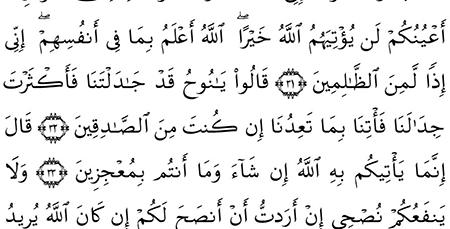 أَعْيُنُكُمْ لَن يُؤْتِيَهُمُ ٱللَّهُ خَيْرًا ۖ ٱللَّهُ أَعْلَمُ بِمَا فِىٓ أَنفُسِهِمْ ۖ إِنِّىٓ
إِذًا لَّمِنَ ٱلظَّـٰلِمِينَ ﴿٣١﴾ قَالُوا۟ يَـٰنُوحُ قَدْ جَـٰدَلْتَنَا فَأَكْثَرْتَ
جِدَٰلَنَا فَأْتِنَا بِمَا تَعِدُنَآ إِن كُنتَ مِنَ ٱلصَّـٰدِقِينَ ﴿٣٢﴾ قَالَ
إِنَّمَا يَأْتِيكُم بِهِ ٱللَّهُ إِن شَآءَ وَمَآ أَنتُم بِمُعْجِزِينَ ﴿٣٣﴾ وَلَا
يَنفَعُكُمْ نُصْحِىٓ إِنْ أَرَدتُّ أَنْ أَنصَحَ لَكُمْ إِن كَانَ ٱللَّهُ يُرِيدُ